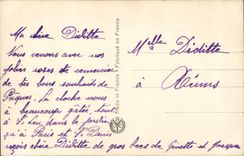 Ma chère Diditte
Vous venons avec nos
jolies roses te remercier
de tes bons souhaits de
Pâques. La cloche nous
a beaucoup gâtés, tout
à St Leu dans le jardin
qu'à Paris et St Denis
reçois chère Diditte de gros bers de Ginette et Jacques
Fabriqué en France
Made in France
Melle Diditte
à
Reims